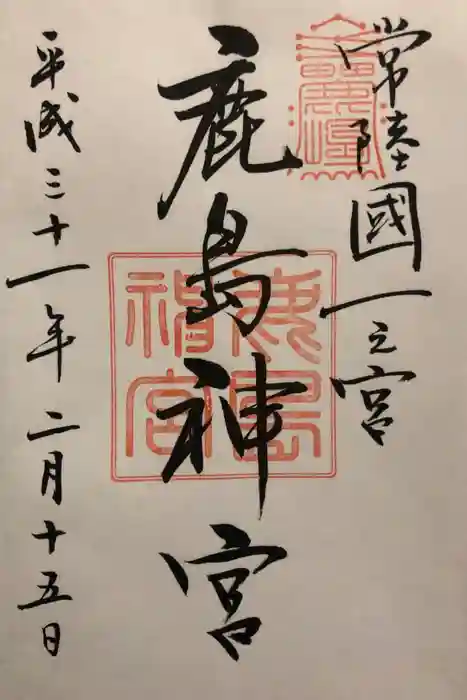 常陸國一之宮
鹿島神宮
平成三十一年二月十五日
鹿島神宮